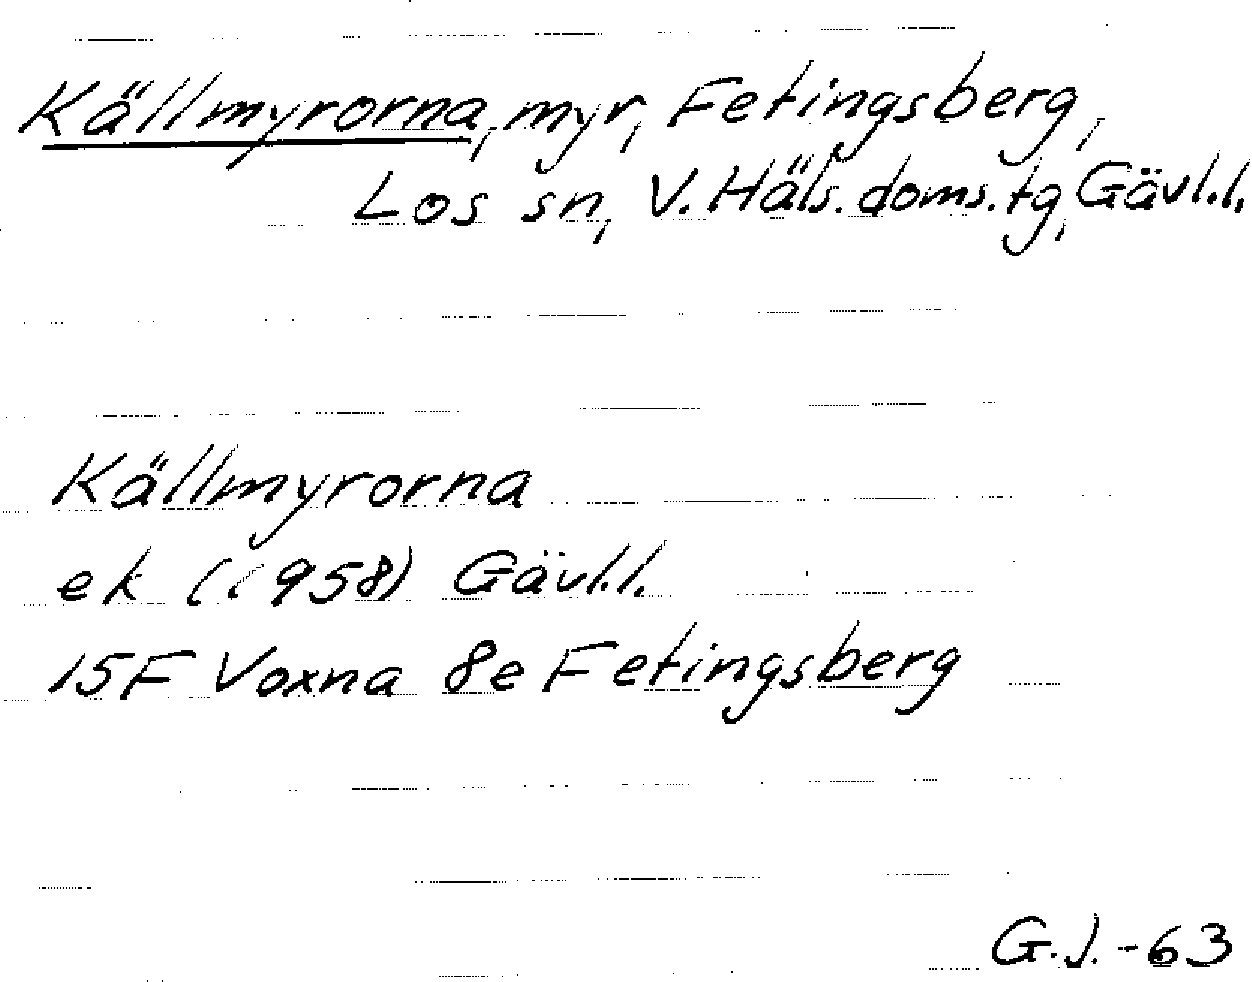 Källmyrorna, myr, Fetingsberg,
Los sn, V. Häls. doms. tg, Gävl.l.
Källmyrorna
ek (1958) Gävl.l.
15F Voxna 8e Fetingsberg
G.J.-63